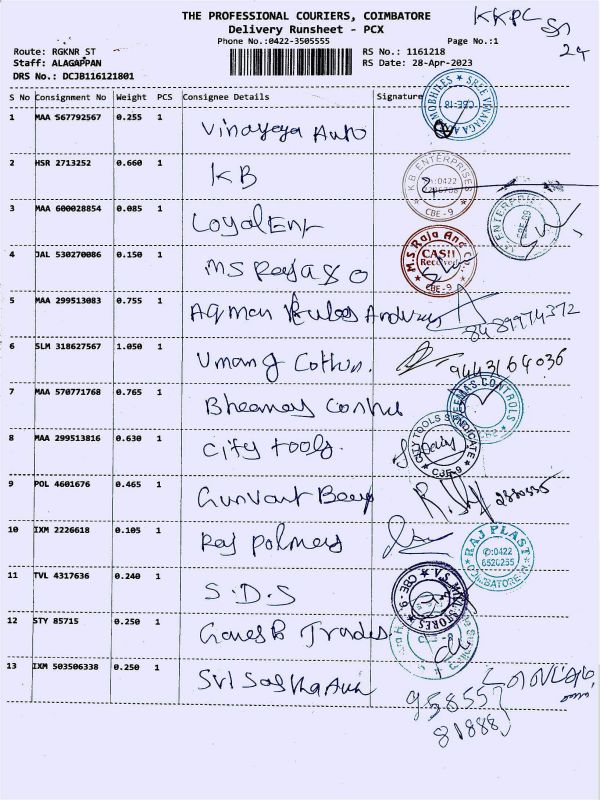 THE PROFESSIONAL COURIERS, COIMBATORE
Delivery Runsheet - PCX
Phone No.:0422-3505555 Page No.:1
KKPC
24
Route: RGKNR ST RS No.: 1161218
Staff: ALAGAPPAN RS Date: 28-Apr-2023
DRS No.: DCJB116121801
S No Consignment No Weight PCS Consignee Details Signature
1 MAA 567792567 0.255 1 Vinayaga Auto
SREE VINAYAGA AUTOMOBILES CBE-18
2 HSR 2713252 0.660 1 KB
K.B ENTERPRISES CBE - 9
3 MAA 600028854 0.085 1 Loyal Ent
ENTERPRISES
4 JAL 530270086 0.150 1 MS Raja & Co
M.S Raja And Co., CASH Received CBE - 9
5 MAA 299513083 0.755 1 Agman
8489974372
6 SLM 318627567 1.050 1 Umang Cotton.
9443164036
7 MAA 570771768 0.765 1 Bheemas Controls
BHEEMAS CONTROLS
8 MAA 299513816 0.630 1 City tools.
CITY TOOLS SYNDICATE CBE-9
9 POL 4601676 0.465 1 Gunvant
10 IXM 2226618 0.105 1 Raj Polmers
RAJ PLAST ✆:0422 6520255 COIMBATORE
11 TVL 4317636 0.240 1 S.D.S
V.S. MILL STORES CBE-9
12 STY 85715 0.250 1 Ganesh Trades
13 IXM 503506338 0.250 1 Sri
958557
81888